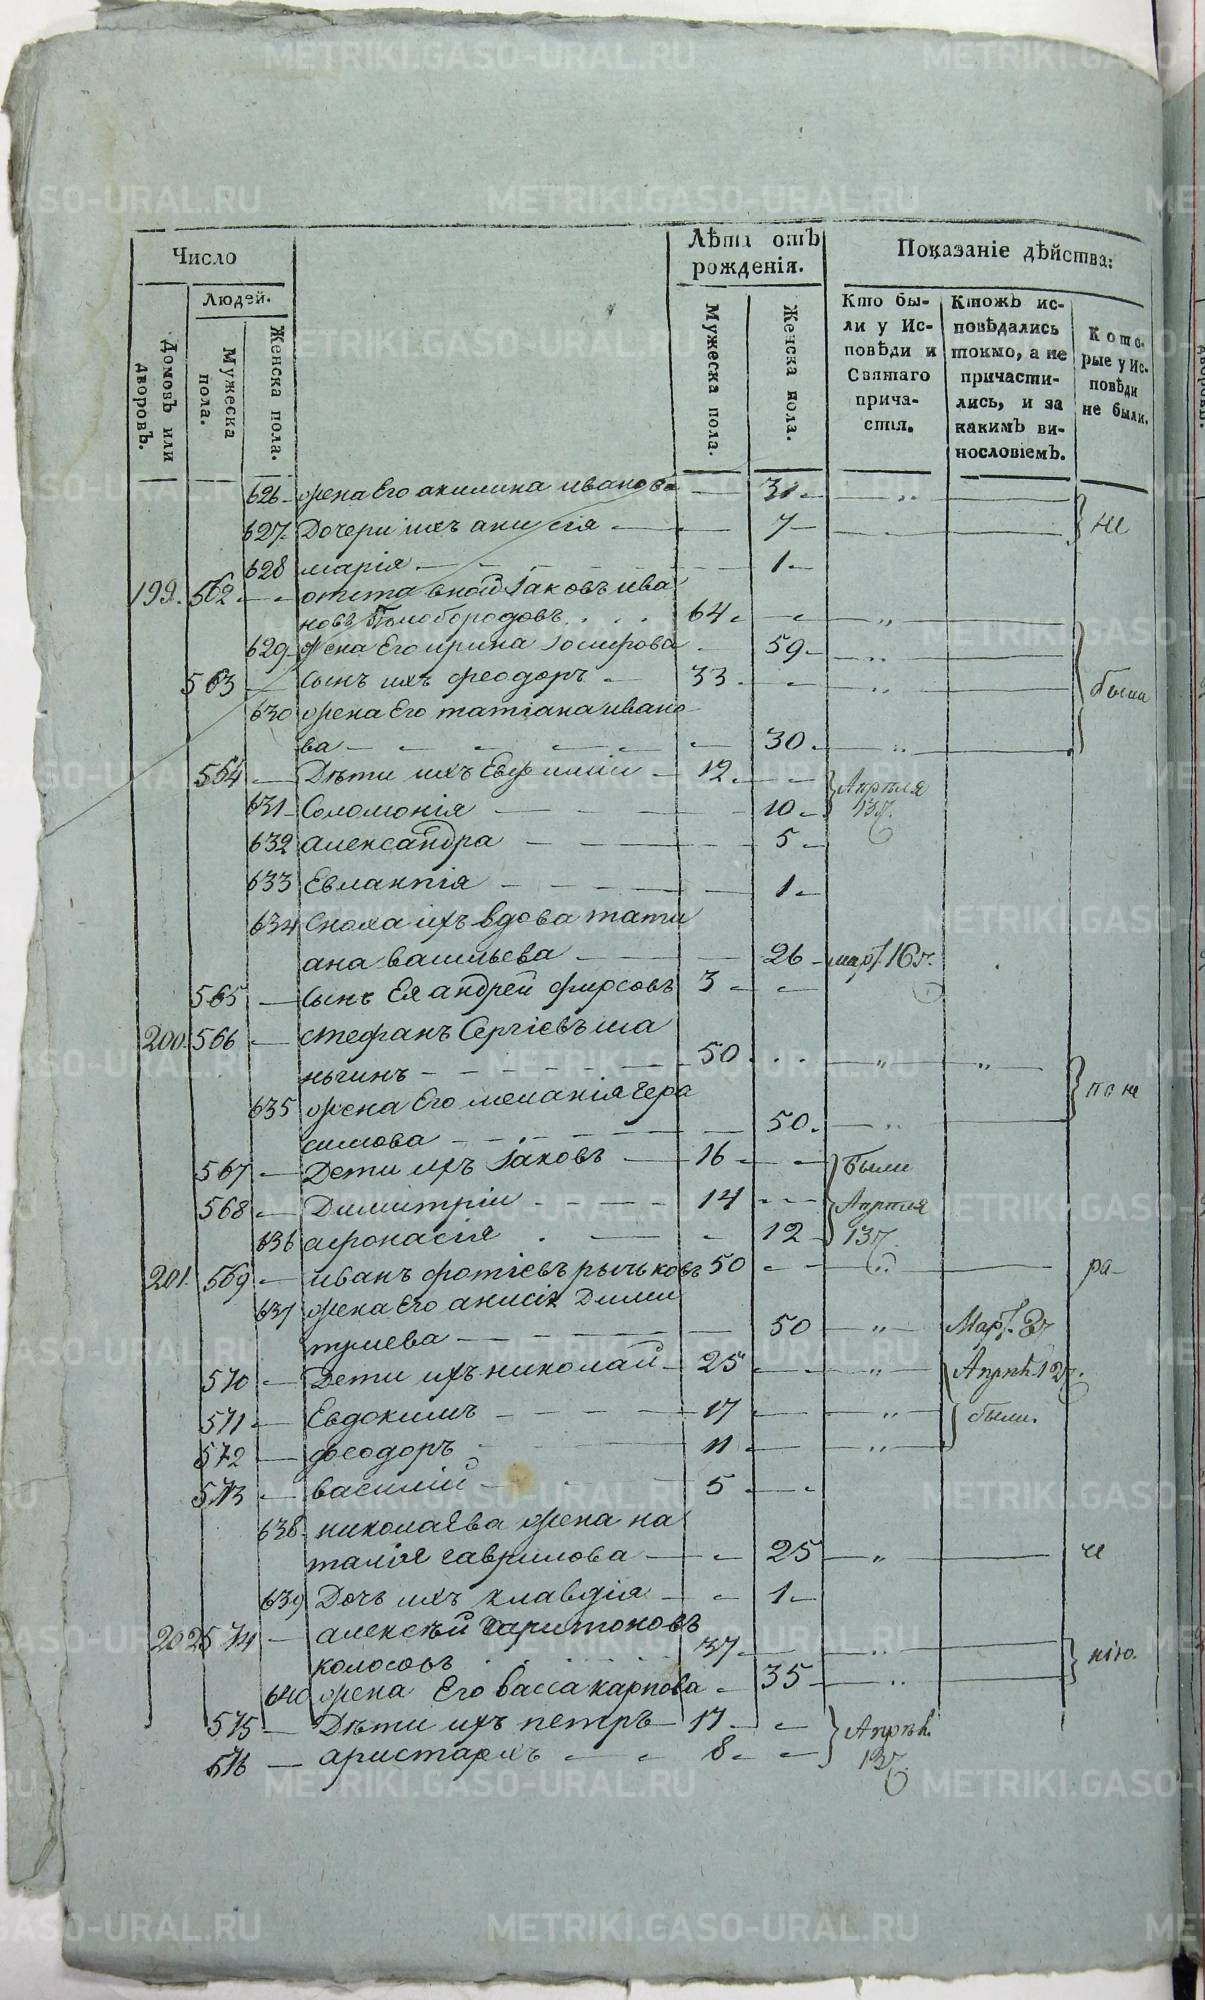 Число
Лѣта отъ рожденія.
Показаніе дѣйства:
Домовъ или дворовъ.
Людей.
Мужеска пола.
Женска пола.
Мужеска пола.
Женска пола.
Кто были у Исповѣди и Святаго причастія.
Ктожъ исповѣдались токмо, а не причастились, и за какимъ винословіемъ.
Которые у Исповѣди не были.
626 жена Его акилина иванова — 31 — „ —
627 Дочери ихъ анисія — 7 — не
628 марія — 1 —
199. 562 — отставной Іаковъ ива
новъ Голобородовъ. 64. — „ —
629 жена Его ирина — 59 — „ —
563 — Сынъ ихъ феодоръ — 33 — „ — были
630 жена Его татіана ивано
ва — 30. — „ —
564 — Дѣти ихъ Евфимій — 12. — Апрѣля
631 Соломонія — 10 — 13
632 александра — 5 —
633 Евлампія — 1 —
634 Сноха ихъ вдова тати
ана васильева — 26 — мар. 16
565 — Сынъ Ея андрей фирсовъ 3 —
200. 566 — стефанъ Сергіевъ ша
ньгинъ — 50 — „ — „ —
635 жена Его меланія гера
симова — 50. — „ — по не
567 — Дети ихъ Іаковъ — 16 — были
568 — Димитрій — 14 — Апрѣля
636 афонасія — 12 — 13
201. 569 — иванъ фотіевъ рычьковъ 50 — „ — ра-
637 жена Его анисія Дими
триева — 50 — „ — Мар. 8
570 — Дети ихъ николай — 25 — „ — Апрѣ. 12
571 — Евдокимъ — 17 — „ — были.
572 — феодоръ — 11 — „ —
573 — василій — 5 —
638 николаева жена на
талія гаврилова — 25 — „ — че
639 Дочь ихъ клавдія — 1 —
202 574 — алексѣй харитоновъ
колосовъ 37 — „ —
640 жена Его васса карпова — 35 — „ — нію.
575 — Дѣти ихъ петръ — 17 — Апрѣ.
576 — аристархъ — 8 — 13
METRIKI.GASO-URAL.RU